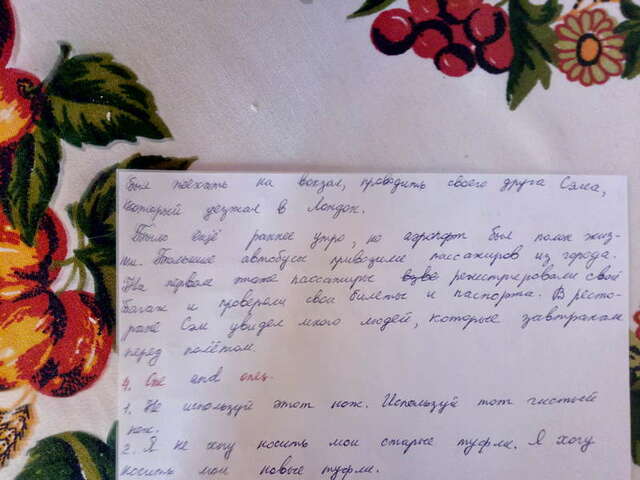 был поехать на вокзал, проводить своего друга Сэма,
который уезжал в Лондон.
Было ещё раннее утро, но аэропорт был полон жиз-
ни. Большие автобусы привозили пассажиров из города.
На первом этаже пассажиры регистрировали свой
багаж и проверяли свои билеты и паспорта. В ресто-
ране Сэм увидел много людей, которые завтракали
перед полётом.
4. One and ones.
1. Не используй этот нож. Используй тот чистый
нож.
2. Я не хочу носить мои старые туфли. Я хочу
носить мои новые туфли.